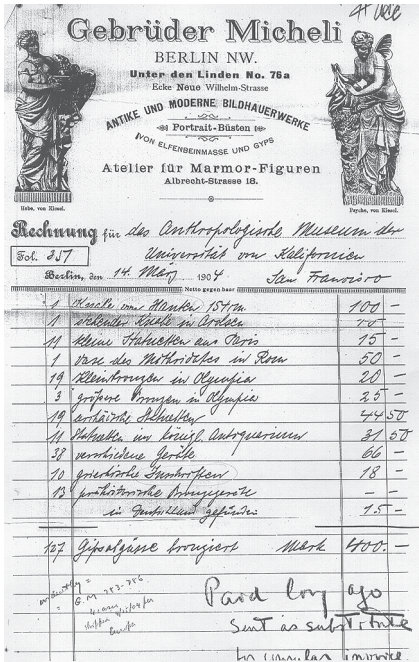 Gebrüder Micheli
BERLIN NW.
Unter den Linden No. 76a
Ecke Neue Wilhelm-Strasse
ANTIKE UND MODERNE BILDHAUERWERKE
Portrait-Büsten
VON ELFENBEINMASSE UND GYPS
Atelier für Marmor-Figuren
Albrecht-Strasse 18.
Hebe, von Kiesel.
Psyche, von Kiesel.
Rechnung für das Anthropologische Museum der
Fol. 257 Universität von Kalifornien
Berlin, den 14. März 1904 San Francisco
Netto gegen baar
1 100 –
1 Knabe in
11 kleine Statuetten aus Paris 15 –
1 Vase des Mithridates in Rom 50 –
19 Kleinbronzen in Olympia 20 –
3 größere Bronzen in Olympia 25 –
19 archäische Statuetten 44 50
11 Statuetten im königl. Antiquarium 31 50
38 verschiedene Geräte 66 –
10 griechische Inschriften 18 –
13 prähistorische Bronzegeräte – –
in Deutschland gefunden 15 –
127 Gipsabgüsse bronziert Mark 400. –
Paid long ago
Sent as substitute
for consular invoice